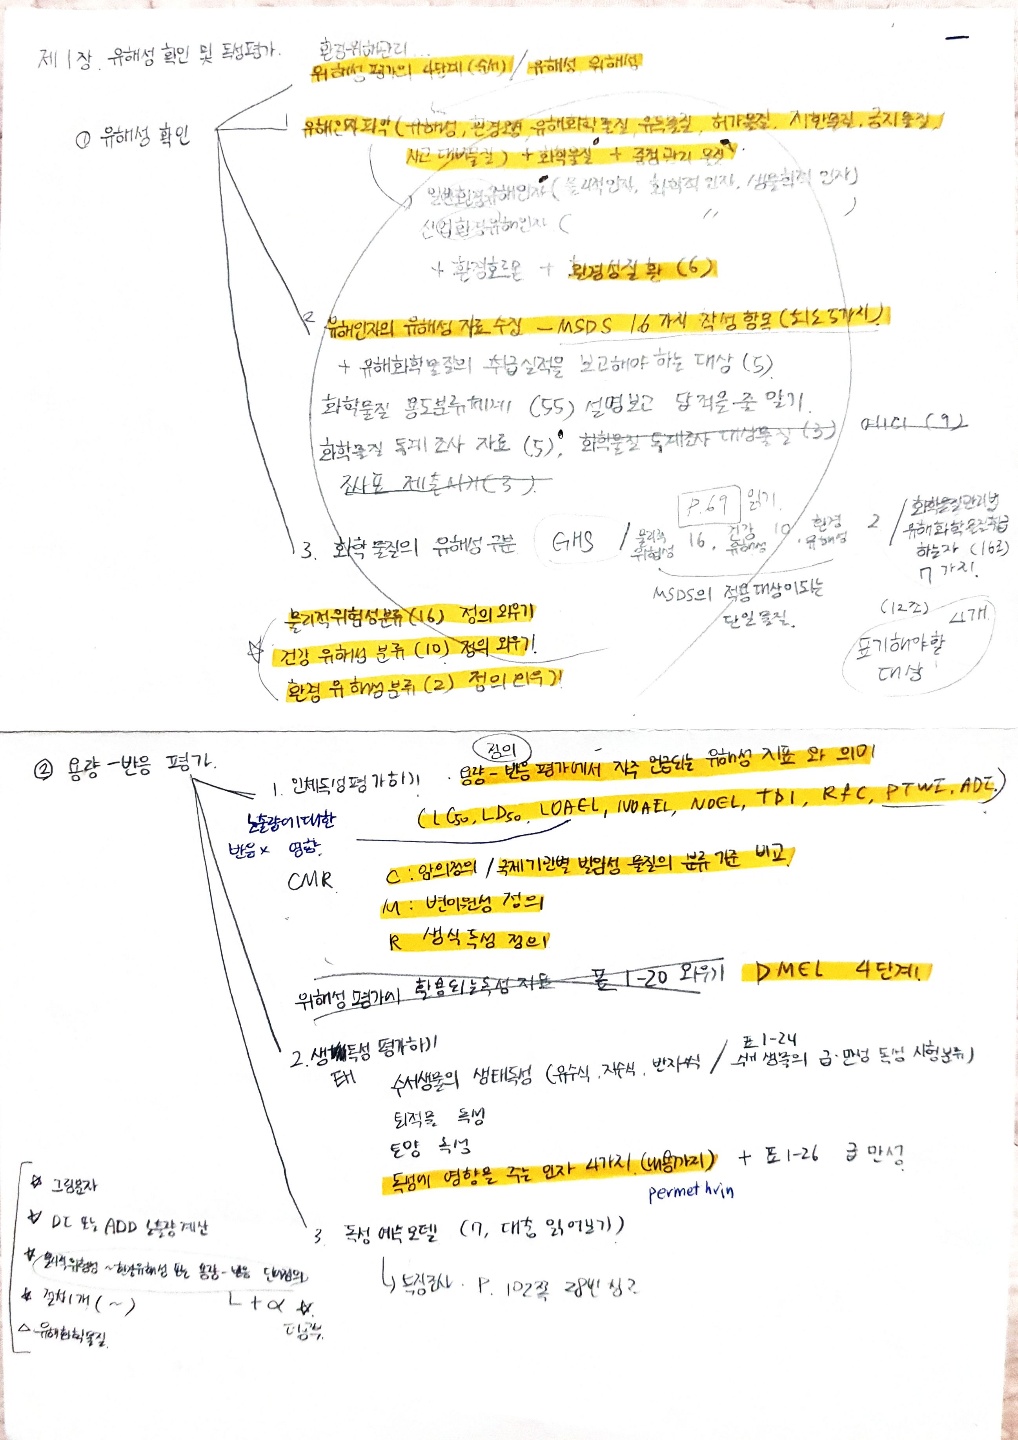 제1장. 유해성 확인 및 독성평가.
환경위해관리...
위해성 평가의 4단계 (순서) / 유해성 위해성
① 유해성 확인
1 유해인자파악 (유해성, 환경오염, 유해화학물질, 유독물질, 허가물질, 제한물질, 금지물질,
사고대비물질) + 화학물질 + 중점관리물질.
일반환경유해인자 (물리적인자, 화학적 인자, 생물학적 인자)
산업환경유해인자 ( 〃 )
+ 환경호르몬 + 환경성질환 (6)
2 유해인자의 유해성 자료수집 - MSDS 16가지 작성항목 (최소 5가지)
+ 유해화학물질의 취급실적을 보고해야 하는 대상 (5)
화학물질 용도분류체계 (55) 설명보고 답적을줄 알기.
화학물질 통계조사 자료 (5), 화학물질 통계조사 대상물질 (3) (9)
조사표 제출시기 (3).
P.69 읽기.
3. 화학물질의 유해성 구분 GHS / 물리적 위험성 16, 건강 유해성 10, 환경 유해성 2
/ 화학물질관리법
유해화학물질취급
하는자 (16조)
7가지!
MSDS의 적용대상이되는
단일물질.
(12조) 4개
표기해야할
대상
물리적위험성분류 (16) 정의 외우기
☆ 건강 유해성 분류 (10) 정의 외우기!
환경 유해성분류 (2) 정의 외우기!
② 용량-반응 평가.
정의
1. 인체독성평가하기 · 용량-반응평가에서 자주 언급되는 유해성 지표와 의미
(LC50, LD50, LOAEL, NOAEL, NOEL, TDI, RfC, PTWI, ADI.)
노출량에 대한
반응 x 영향.
CMR.
C : 암의정의 / 국제기관별 발암성 물질의 분류기준 비교
M : 변이원성 정의
R 생식독성 정의
위해성 평가에 활용되는독성지표 표 1-20 외우기 DMEL 4단계!
2. 생태독성 평가하기
수서생물의 생태독성 (유수식, 지수식, 반지수식 / 표 1-24 수서생물의 급·만성 독성 시험분류)
퇴적물 독성
토양 독성
독성에 영향을 주는 인자 4가지. (내용까지) + 표 1-26 급만성.
permethrin
3. 독성예측모델 (7, 대충 읽어보기)
↳ 독성조사. P. 102쪽
☆ 그림문자
☆ DI 또는 ADD 노출량계산
☆ 물리적위험성 ~ 환경유해성 또는 용량-반응
☆ (~) ㄴ + α ☆.
△ 유해화학물질.